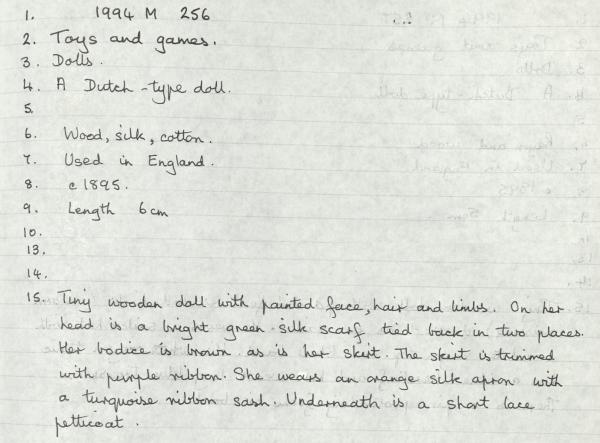 1. 1994 M 256
2. Toys and games.
3. Dolls.
4. A Dutch-type doll.
5.
6. Wood, silk, cotton.
7. Used in England.
8. c 1895.
9. Length 6cm
10.
13.
14.
15. Tiny wooden doll with painted face, hair and limbs. On her
head is a bright green silk scarf tied back in two places.
Her bodice is brown as is her skirt. The skirt is trimmed
with purple ribbon. She wears an orange silk apron with
a turquoise ribbon sash. Underneath is a short lace
petticoat.